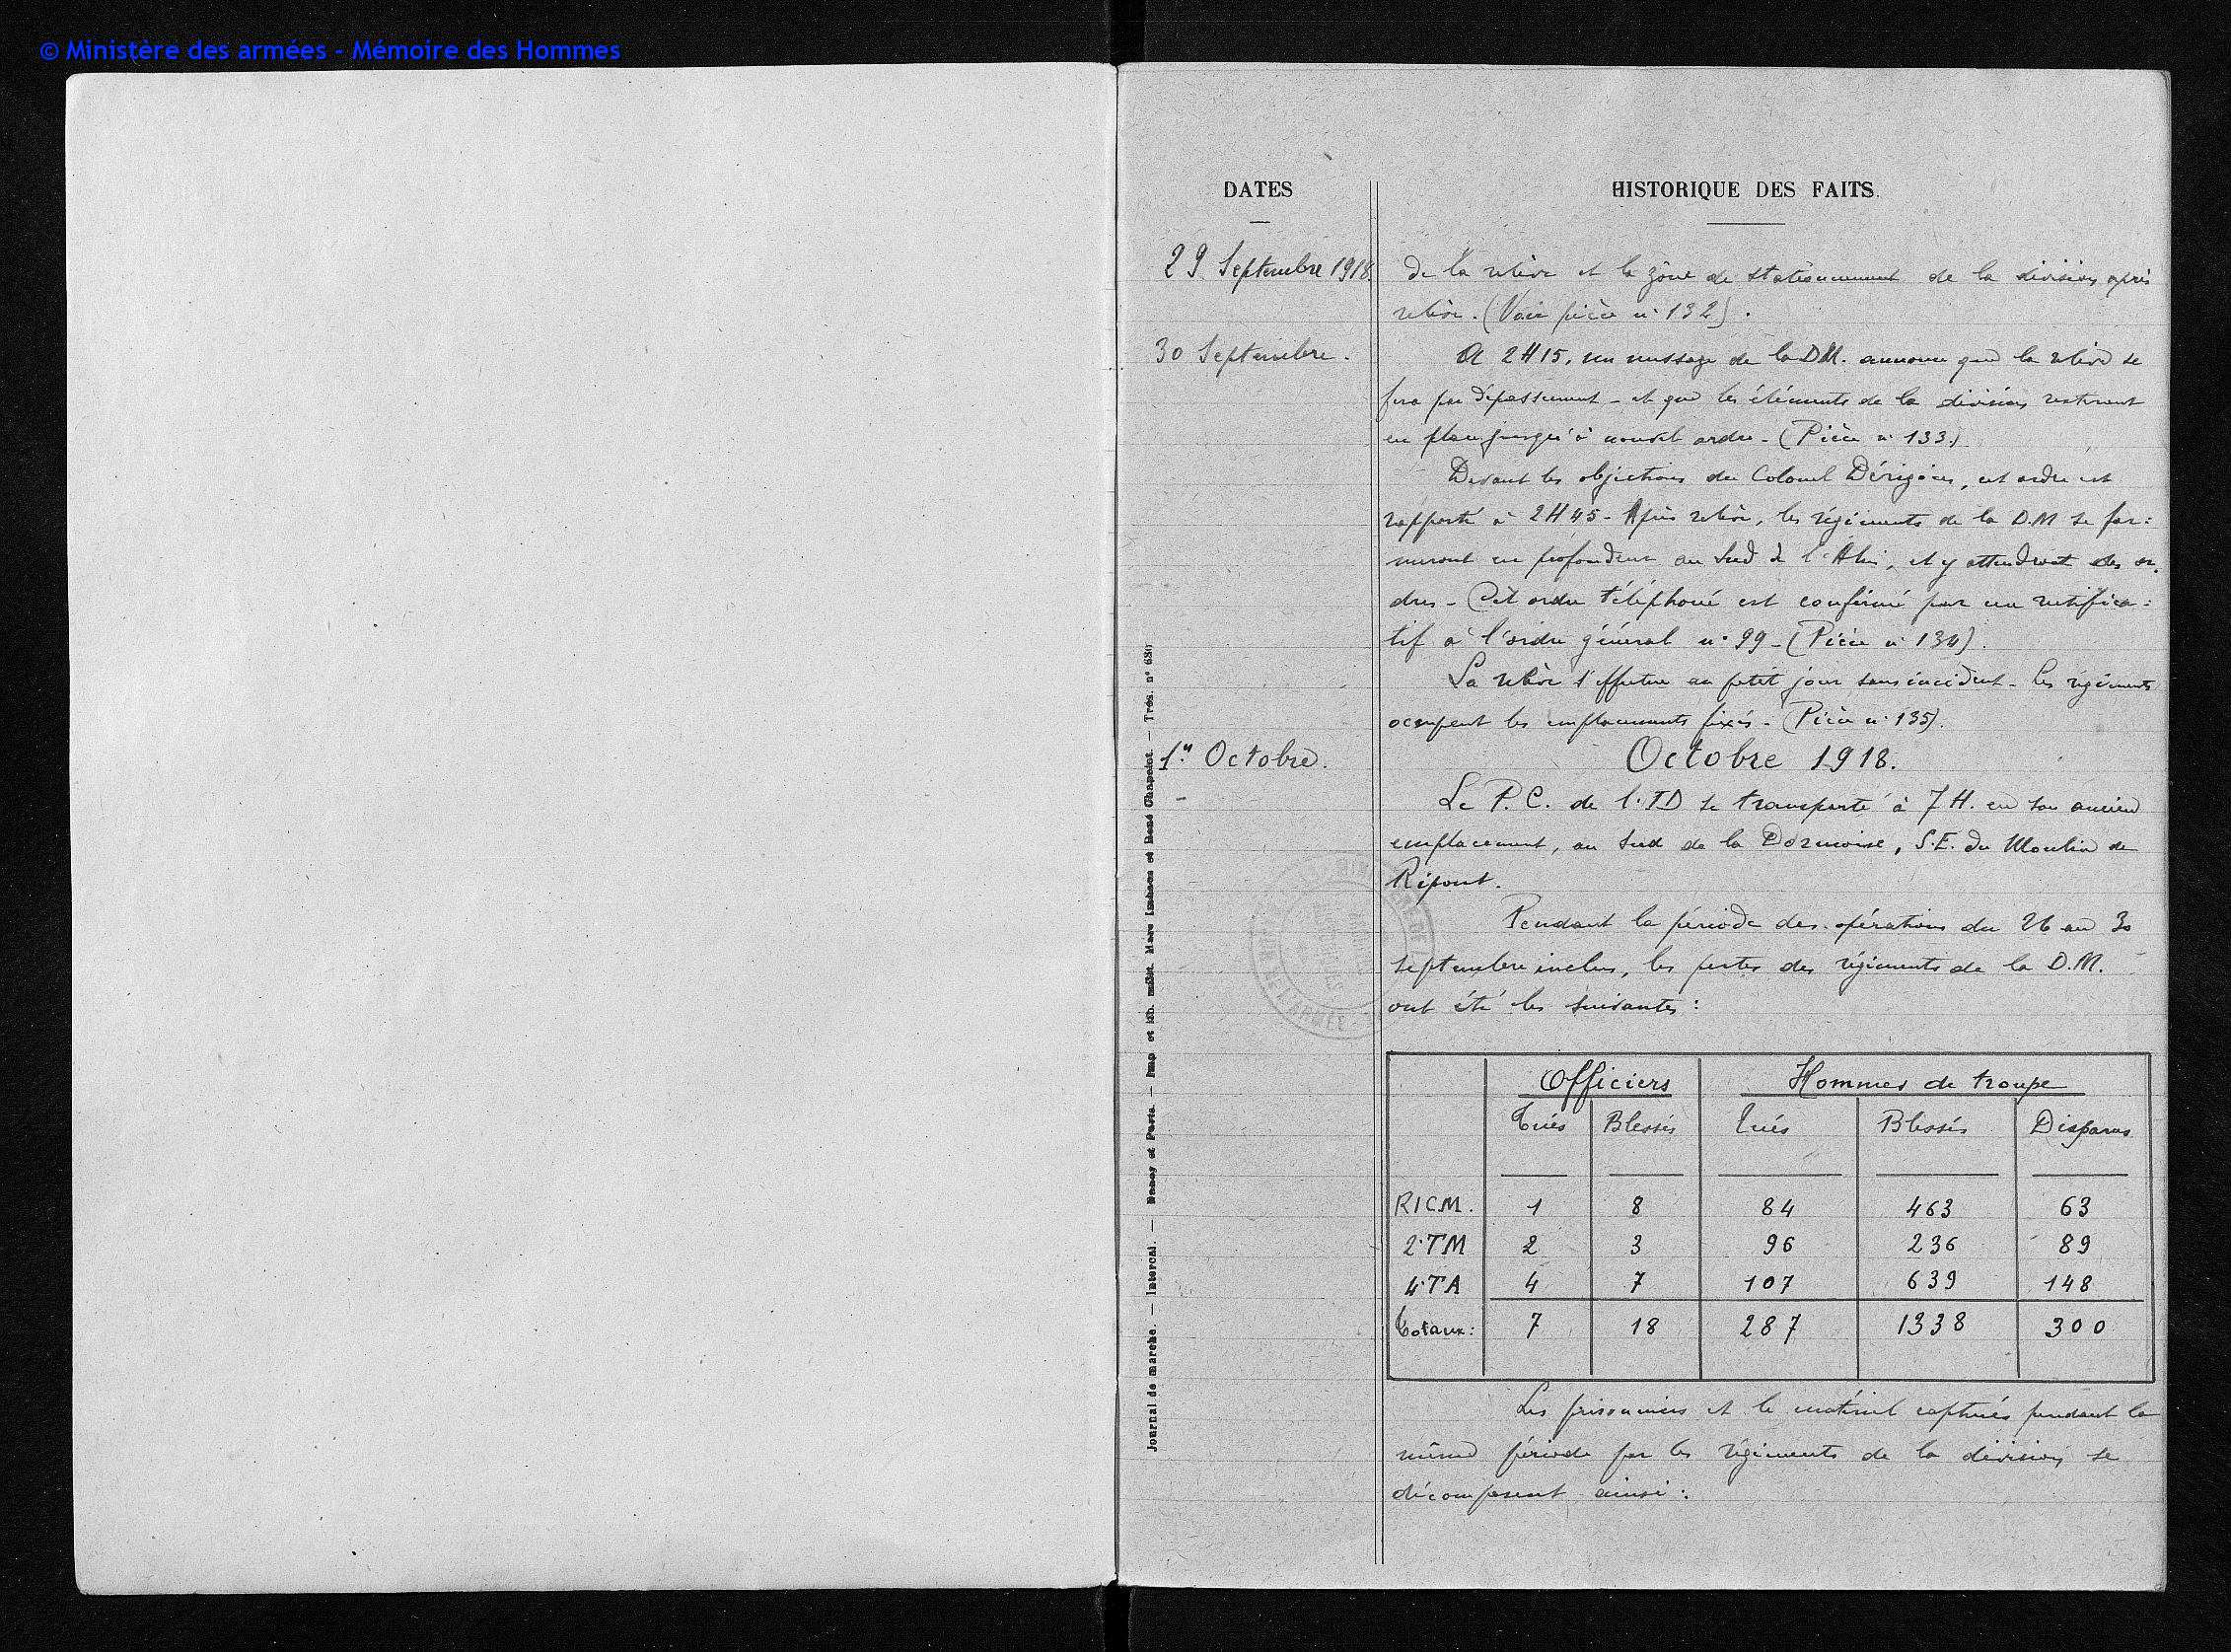 © Ministère des armées - Mémoire des Hommes
DATES
HISTORIQUE DES FAITS.
29 Septembre 1918.
de la relève et la zône de stationnement de la division après
relève. (Voir pièce n° 132).
30 Septembre.
A 2H15, un message de la DM. annonce que la relève se
fera par dépassement - et que les éléments de la division resteront
en place jusqu'à nouvel ordre - (Pièce n° 133.)
Devant les objections du Colonel Dérigoin, cet ordre est
rapporté à 2H45 - Après relève, les régiments de la D.M se for:
meront en profondeur au Sud de l'Alin, et y attendront des or.
dres - Cet ordre téléphoné est confirmé par un rectifica:
tif à l'ordre général n° 99 - (Pièce n° 134).
La relève s'effectue au petit jour sans incident - Les régiments
occupent les emplacements fixés - (Pièce n° 135).
1er Octobre.
Octobre 1918.
Le P.C. de l'ID se transporte à 7H. en son ancien
emplacement, au Sud de la Dormoise, S.E. du Moulin de
Ripont.
Pendant la période des opérations du 26 au 30
septembre inclus, les pertes des régiments de la D.M.
ont été les suivantes :
Officiers Hommes de troupe
Tués Blessés Tués Blessés Disparus
RICM. 1 8 84 463 63
2°TM 2 3 96 236 89
4°TA 4 7 107 639 148
Totaux: 7 18 287 1338 300
Les prisonniers et le matériel capturés pendant la
même période par les régiments de la division se
décomposent ainsi :
Journal de marche. — Intercal. — Nancy et Paris. — Imp. et lib. milit. Marc Imhaus et René Chapelot. — Trés. n° 680